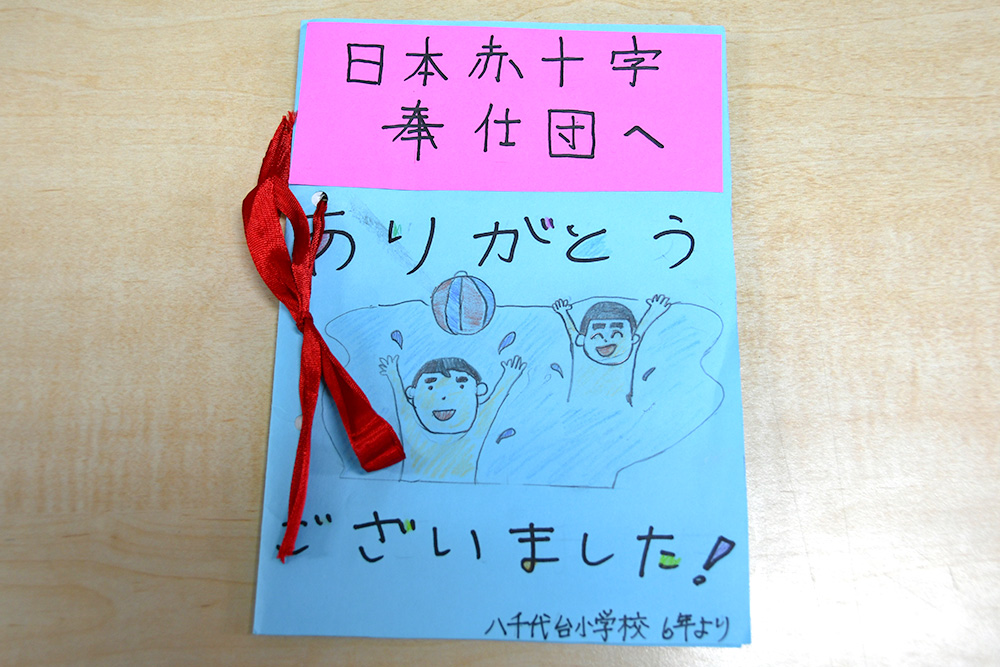 日本赤十字
奉仕団へ
ありがとう
ございました!
八千代台小学校 6年より